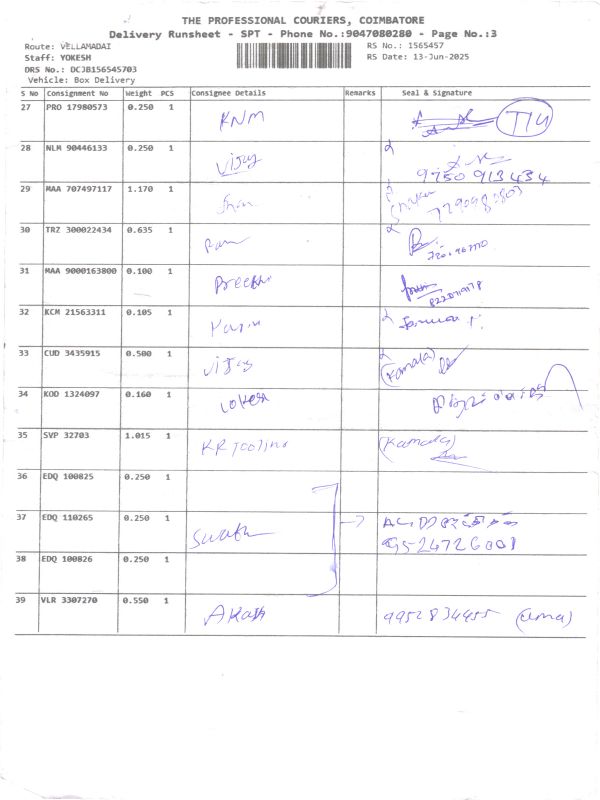 THE PROFESSIONAL COURIERS, COIMBATORE
Delivery Runsheet - SPT - Phone No.:9047080280 - Page No.:3
Route: VELLAMADAI
RS No.: 1565457
Staff: YOKESH
RS Date: 13-Jun-2025
DRS No.: DCJB156545703
Vehicle: Box Delivery
S No Consignment No Weight PCS Consignee Details Remarks Seal & Signature
27 PRO 17980573 0.250 1 KNM T14
28 NLM 90446133 0.250 1 Vijay
9750913434
29 MAA 707497117 1.170 1
30 TRZ 300022434 0.635 1 Ram
31 MAA 9000163800 0.100 1 Preethi
32 KCM 21563311 0.105 1
33 CUD 3435915 0.500 1 Vijay (Kamala)
34 KOD 1324097 0.160 1 Lokesh
35 SVP 32703 1.015 1 KR Tooling (Kamala)
36 EDQ 100825 0.250 1
37 EDQ 110265 0.250 1 Swathi
9524726001
38 EDQ 100826 0.250 1
39 VLR 3307270 0.550 1 Akash 9952834455 (Uma)